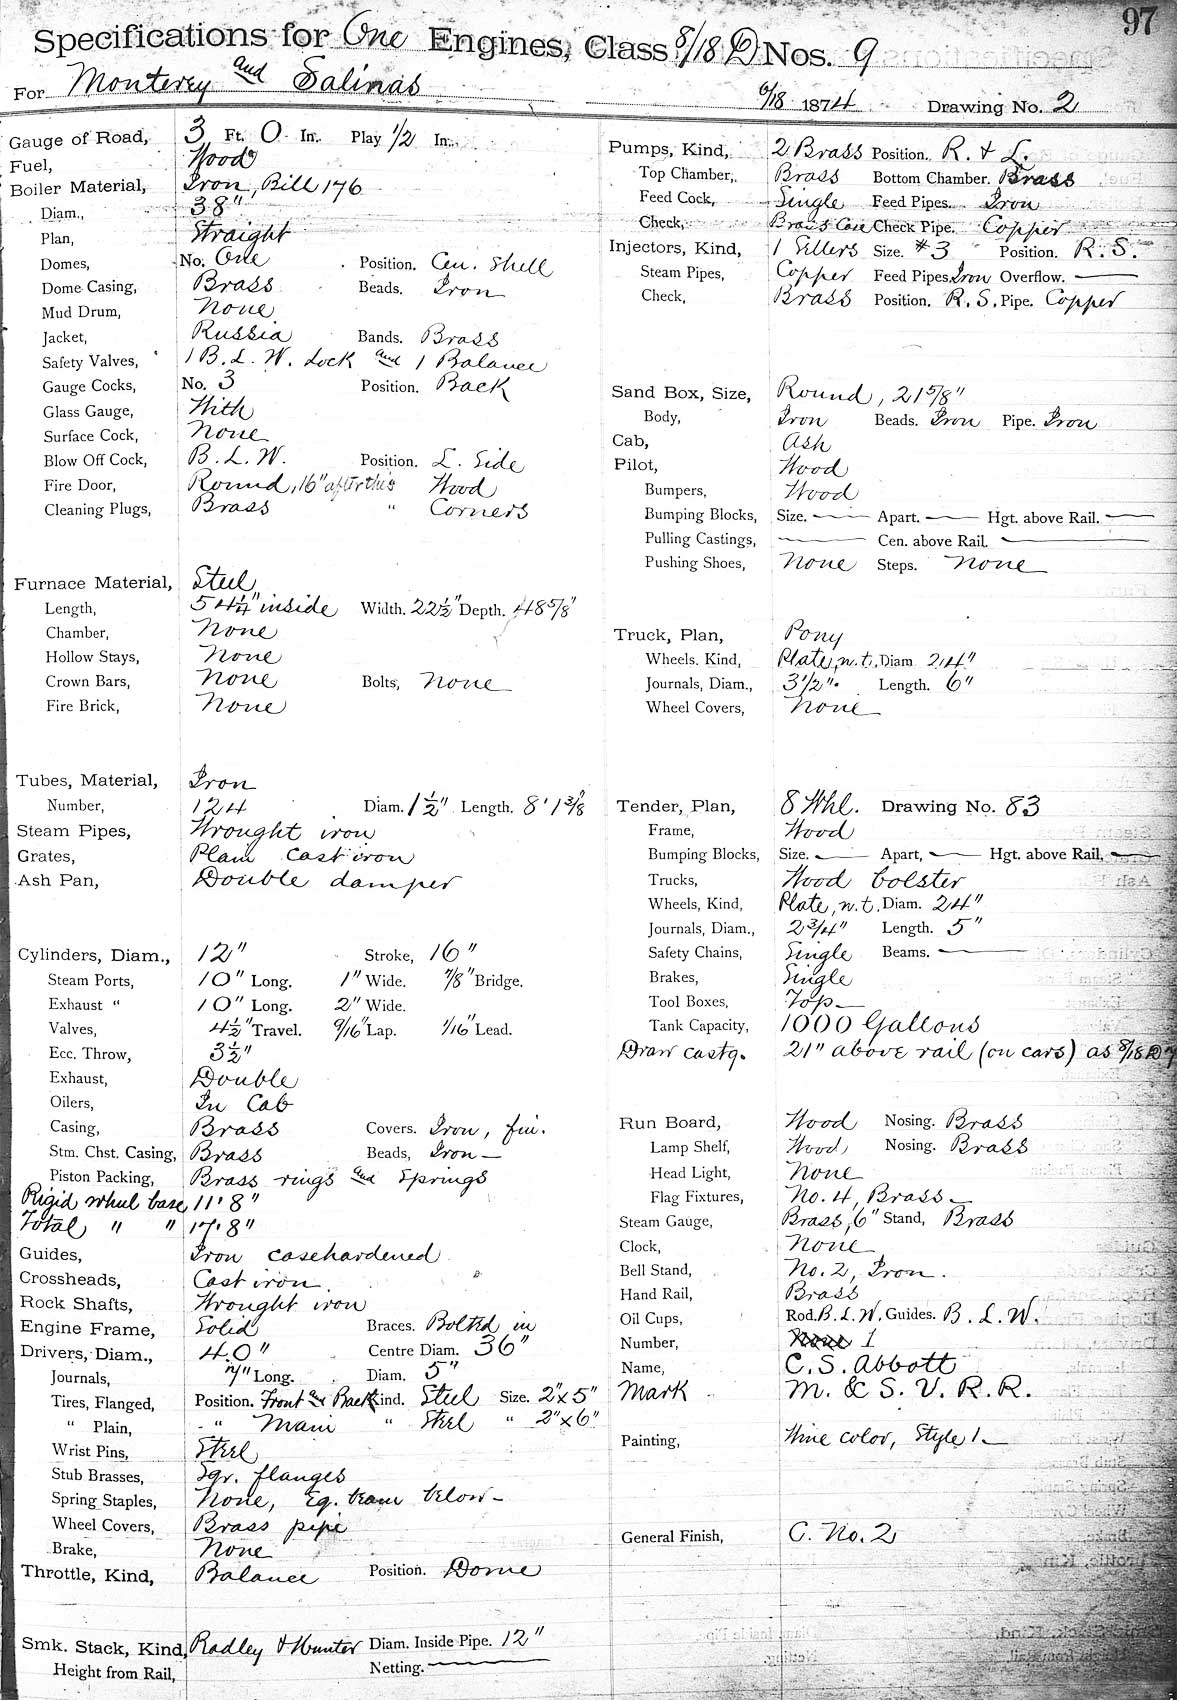 97
Specifications for One Engines, Class 8/18 D Nos. 9
For Monterey and Salinas 6/18 1874 Drawing No. 2
Gauge of Road, 3 Ft. 0 In. Play 1/2 In.
Fuel, Wood
Boiler Material, Iron, Bill 176
Diam., 38"
Plan, Straight
Domes, No. One Position. Cen. Shell
Dome Casing, Brass Beads. Iron
Mud Drum, None
Jacket, Russia Bands. Brass
Safety Valves, 1 B. L. W. Lock and 1 Balance
Gauge Cocks, No. 3 Position. Back
Glass Gauge, With
Surface Cock, None
Blow Off Cock, B. L. W. Position. L. Side
Fire Door, Round, 16" after this Wood
Cleaning Plugs, Brass " Corners
Furnace Material, Steel
Length, 54 1/4" inside Width. 22 1/2" Depth. 48 5/8"
Chamber, None
Hollow Stays, None
Crown Bars, None Bolts, None
Fire Brick, None
Tubes, Material, Iron
Number, 124 Diam. 1 1/2" Length. 8' 1 3/8"
Steam Pipes, Wrought iron
Grates, Plain cast iron
Ash Pan, Double damper
Cylinders, Diam., 12" Stroke, 16"
Steam Ports, 10" Long. 1" Wide. 7/8" Bridge.
Exhaust " 10" Long. 2" Wide.
Valves, 4 1/2" Travel. 9/16" Lap. 1/16" Lead.
Ecc. Throw, 3 1/2"
Exhaust, Double
Oilers, In Cab
Casing, Brass Covers. Iron, fin.
Stm. Chst. Casing, Brass Beads, Iron
Piston Packing, Brass rings and Springs
Rigid wheel base 11' 8"
Total " " 17' 8"
Guides, Iron casehardened
Crossheads, Cast iron
Rock Shafts, Wrought iron
Engine Frame, Solid Braces. Bolted in
Drivers, Diam., 40" Centre Diam. 36"
Journals, 7" Long. Diam. 5"
Tires, Flanged, Position. Front and Back Kind. Steel Size. 2" x 5"
" Plain, " Main " Steel " 2" x 6"
Wrist Pins, Steel
Stub Brasses, Sqr. flanges
Spring Staples, None, Eq. beam below
Wheel Covers, Brass pipe
Brake, None
Throttle, Kind, Balance Position. Dome
Smk. Stack, Kind, Radley & Hunter Diam. Inside Pipe. 12"
Height from Rail, Netting.
Pumps, Kind, 2 Brass Position. R. & L.
Top Chamber, Brass Bottom Chamber. Brass
Feed Cock, Single Feed Pipes. Iron
Check, Brass Case Check Pipe. Copper
Injectors, Kind, 1 Sellers Size. #3 Position. R. S.
Steam Pipes, Copper Feed Pipes Iron Overflow.
Check, Brass Position. R. S. Pipe. Copper
Sand Box, Size, Round, 21 5/8"
Body, Iron Beads. Iron Pipe. Iron
Cab, Ash
Pilot, Wood
Bumpers, Wood
Bumping Blocks, Size. Apart. Hgt. above Rail.
Pulling Castings, Cen. above Rail.
Pushing Shoes, None Steps. None
Truck, Plan, Pony
Wheels. Kind, Plate, n. t. Diam 24"
Journals, Diam., 3 1/2" Length. 6"
Wheel Covers, None
Tender, Plan, 8 Whl. Drawing No. 83
Frame, Wood
Bumping Blocks, Size. Apart, Hgt. above Rail,
Trucks, Wood bolster
Wheels, Kind, Plate, n. t. Diam. 24"
Journals, Diam., 2 3/4" Length. 5"
Safety Chains, Single Beams.
Brakes, Single
Tool Boxes, Top
Tank Capacity, 1000 Gallons
Draw castg. 21" above rail (on cars) as 8/18 D 7
Run Board, Wood Nosing. Brass
Lamp Shelf, Wood Nosing. Brass
Head Light, None
Flag Fixtures, No. 4, Brass
Steam Gauge, Brass, 6" Stand, Brass
Clock, None
Bell Stand, No. 2, Iron.
Hand Rail, Brass
Oil Cups, Rod. B. L. W. Guides. B. L. W.
Number, None 1
Name, C. S. Abbott
Mark M. & S. V. R. R.
Painting, Wine color, Style 1
General Finish, C. No. 2